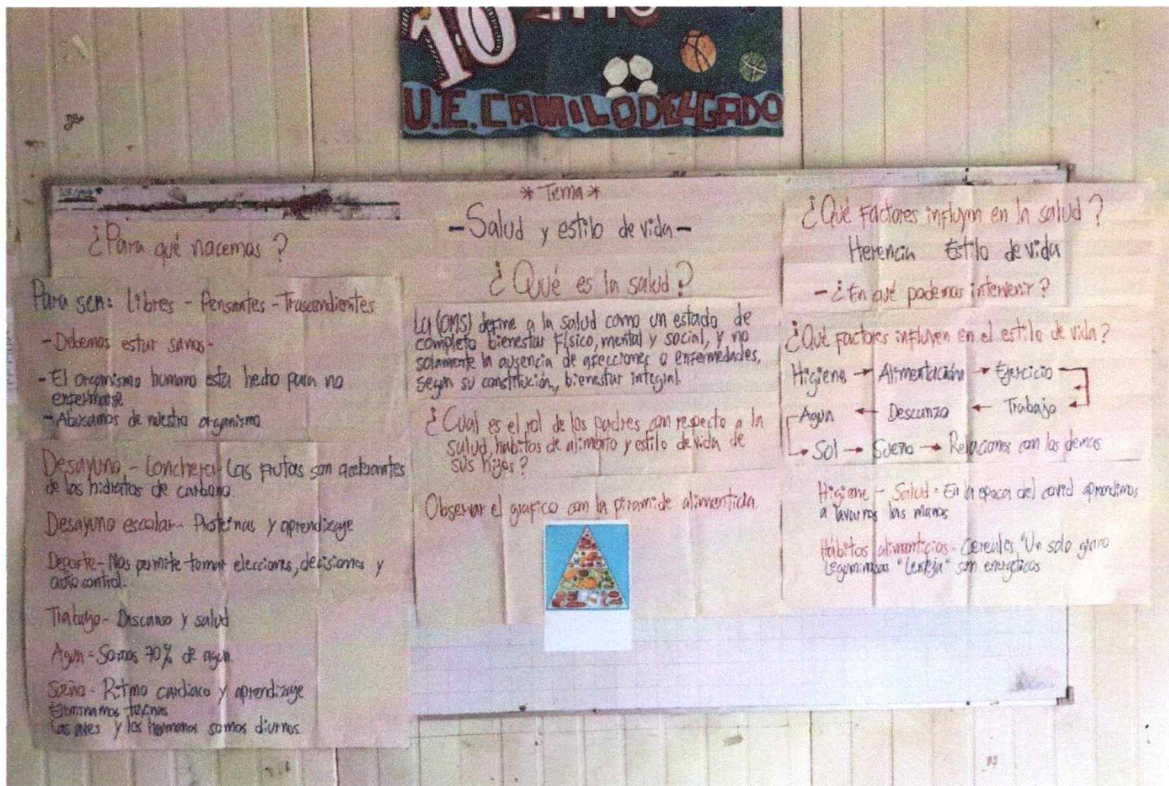 10
U.E. CAMILO DELGADO
¿Para qué nacemos?
Para ser: Libres - Pensantes - Trascendientes
- Debemos estar sanos -
- El organismo humano esta hecho para no
enfermarse
- Abusamos de nuestro organismo
Desayuno - Lonchera - Las frutas son acelerantes
de los hidratos de carbono.
Desayuno escolar - Proteínas y aprendizaje
Deporte - Nos permite tomar elecciones, decisiones y
auto control.
Trabajo - Discanso y salud
Agua - Somos 70% de agua
Sueño - Ritmo cardiaco y aprendizaje
Eliminamos
Las aves y los humanos somos diurnos
* Tema *
- Salud y estilo de vida -
¿Qué es la salud?
La (OMS) define a la salud como un estado de
completo bienestar físico, mental y social, y no
solamente la ausencia de afecciones o enfermedades,
segun su constitución, bienestar integral.
¿Cual es el rol de los padres con respecto a la
salud, habitos de alimento y estilo de vida de
sus hijos?
Observar el grafico con la piramide alimenticia.
¿Qué factores influyen en la salud?
Herencia Estilo de vida
- ¿En qué podemos intervenir?
¿Qué factores influyen en el estilo de vida?
Higiene → Alimentación → Ejercicio
Agua ← Descanzo ← Trabajo
→ Sol → Sueño → Relaciones con los demas
Higiene - Salud - En la epoca del covid aprendimos
a lavarnos las manos
Hábitos alimenticios - Cereales, "Un solo grano
Leguminosas "Lenteja" son energeticos